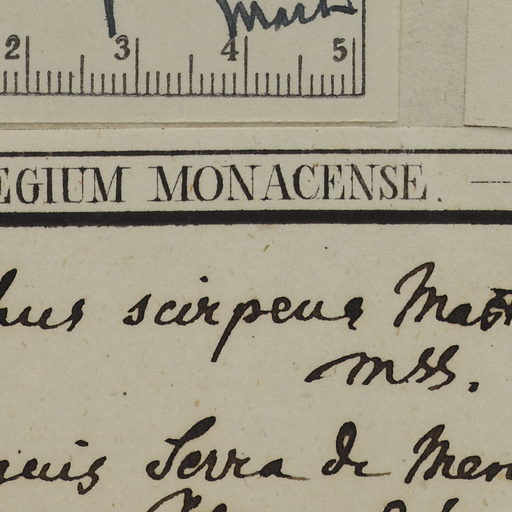 Mart
2 3 4 5
EGIUM MONACENSE.
hus scirpeus Mart
mss.
guis Serra de Men